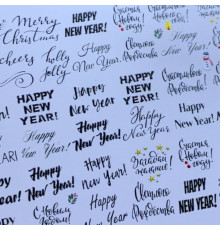 Merry
Christmas
HAPPY
NEW YEAR!
Счастья
в Новом
году!
Cheers
holly
Jolly
Happy
New Year!
Счастливого
Рождества
HAPPY
NEW
YEAR!
Happy
New Year!
HAPPY
NEW
YEAR!
Счастья
в Новом
году!
Happy
New Year!
Happy
New Year!
Happy
New Year!
HAPPY
NEW YEAR!
Happy
New Year!
Загадай
желание!
Счастья
в Новом
году!
Happy
New Year!
Happy
New Year!
Счастливого
Рождества
HAPPY
NEW YEAR!
С Новым
годом!
Happy
New Year!